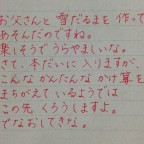 お父さんと雪だるまを作って
あそんだのですね。
楽しそうでうらやましいな。
さて、本だいに入りますが、
こんな かんたんな かけ算を
まちがえて いるようでは
この先 くろうしますよ。
でなおしてきな。